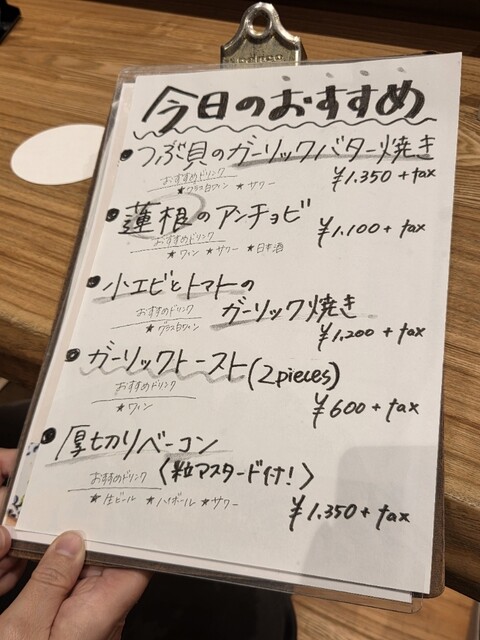 今日のおすすめ
つぶ貝のガーリックバター焼き
おすすめドリンク
★グラス白ワイン ★サワー
¥1,350 + tax
蓮根のアンチョビ
おすすめドリンク
★ワイン ★サワー ★日本酒
¥1,100 + tax
小エビとトマトの
ガーリック焼き
おすすめドリンク
★グラス白ワイン
¥1,200 + tax
ガーリックトースト(2pieces)
おすすめドリンク
★ワイン
¥600 + tax
厚切りベーコン
〈粒マスタード付!〉
おすすめドリンク
★生ビール ★ハイボール ★サワー
¥1,350 + tax